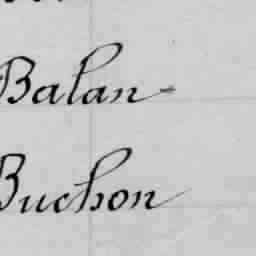 Balan
Buchon